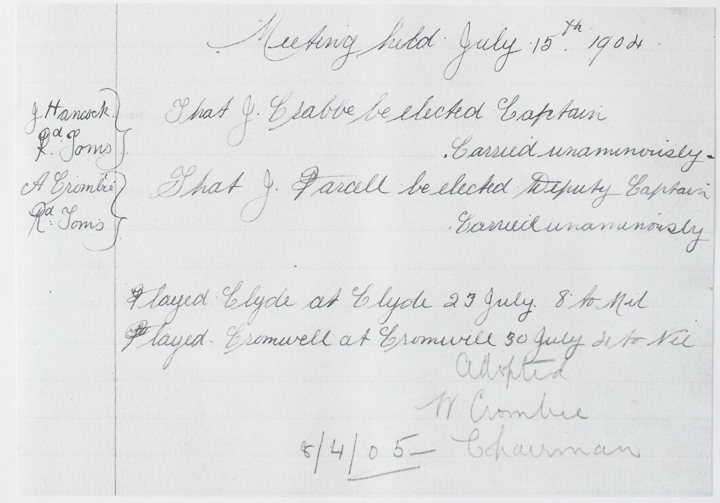 Meeting held July 15th. 1904
J Hancock.
Rd Toms
That J. Crabbe be elected Captain
. Carried unaminoisly -
A Crombie
Rd Toms
That J. Parcell be elected Deputy Captain
. Carried unaminoisly
Played Clyde at Clyde 23 July. 8 to Nil
Played. Cromwell at Cromwell 30 July 4 to Nil
Adopted
W Crombie
8/4/05 - Chairman